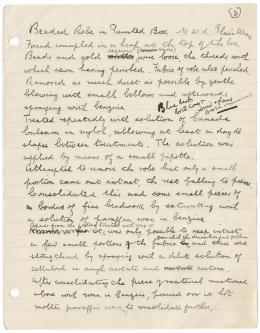 (3)
Beaded Robe in Painted Box No 21 d. Plain Weave
Found crumpled in a heap at the top of the box
Beads and gold were loose the threads with
which sewn having perished. Fabric of robe also perished.
Removed as much dust as possible by gentle
blowing with small bellows and afterwards
spraying with benzine. Blue beads
Treated repeatedly with solution of Canada
balsam in xylol, allowing at least a day to
elapse between treatments. The solution was
applied by means of a small pipette.
Attempted to remove the robe but only a small
portion came out intact the rest falling to pieces
Consolidated this and some small pieces of
borders of fine beadwork by saturating with
a solution of paraffin wax in benzine
was only possible to keep intact
a few small portions of the fabric and this was
strengthened by spraying with a dilute solution of
celluloid in amyl acetate and acetone
After consolidating the piece of material mentioned
above with wax in benzine, poured over it hot
molten paraffin wax, to consolidate further.